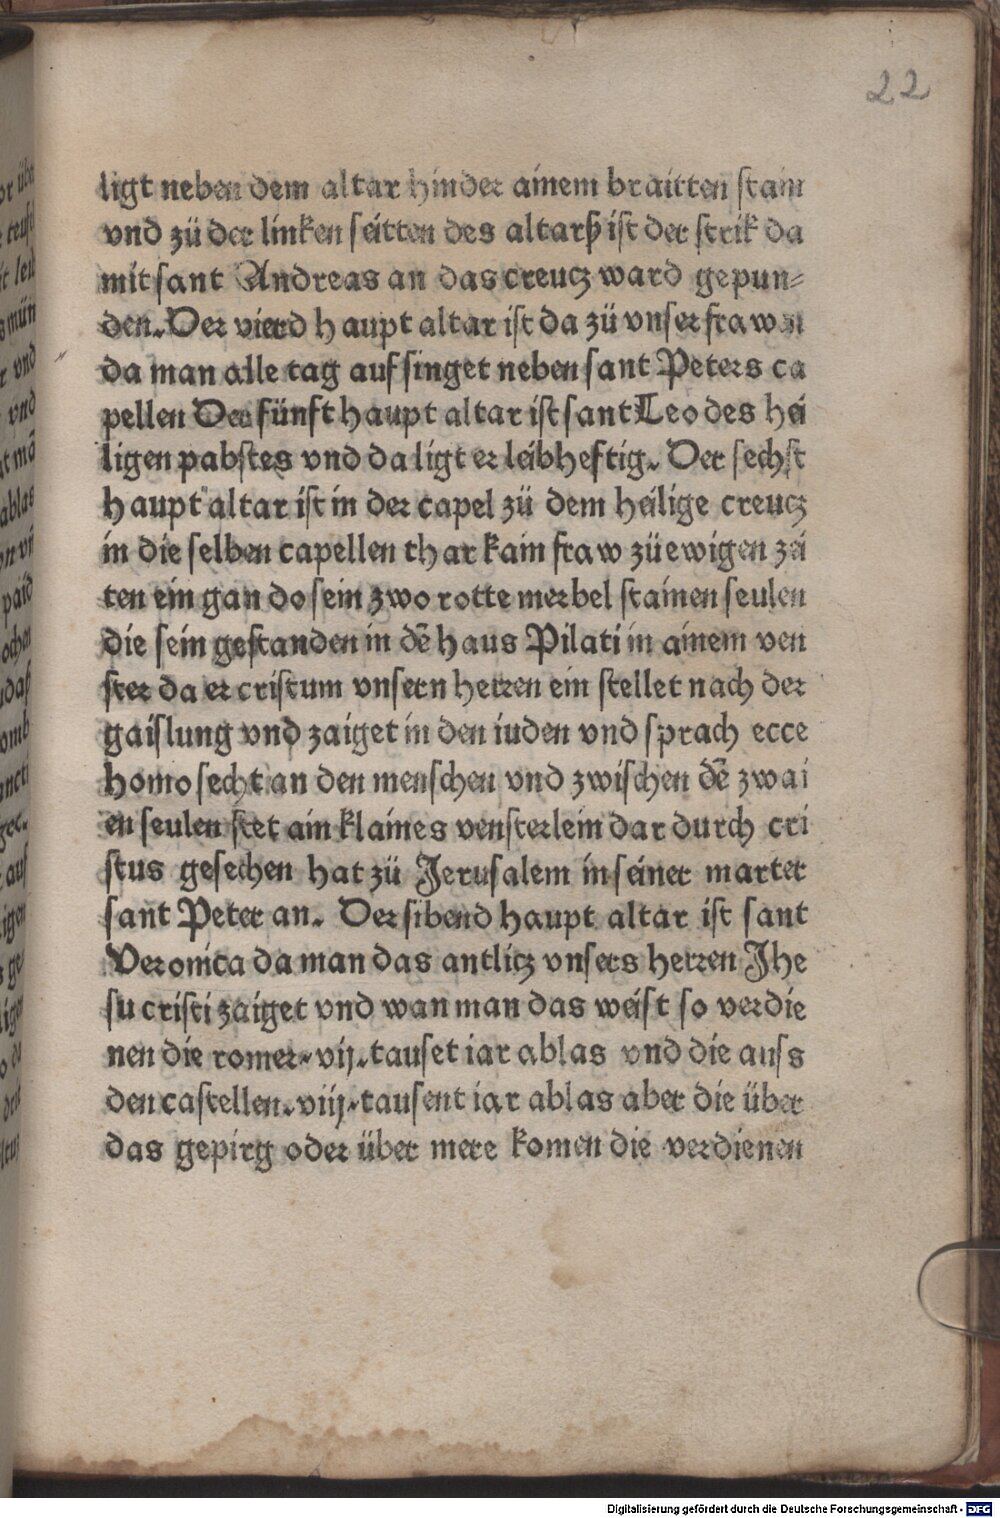 22
ligt neben dem altar hinder ainem braitten stain
vnd zü der linken seitten des altarß ist der strik da
mit sant Andreas an das creucz ward gepun⸗
den. Der vierd haupt altar ist da zü vnser frawen
da man alle tag auf singet neben sant Peters ca
pellen Der fünft haupt altar ist sant Leo des hei
ligen pabstes vnd da ligt er leibheftig. Der sechst
haupt altar ist in der capel zü dem heilige creucz
in die selben capellen thar kain fraw zü ewigen zei
ten ein gan do sein zwo rotte merbel stainen seulen
die sein gestanden in dē haus Pilati in ainem ven
ster da er cristum vnsern herren ein stellet nach der
gaislung vnd zaiget in den iuden vnd sprach ecce
homo secht an den menschen vnd zwischen dē zwai
en seulen stet ain klaines vensterlein dar durch cri
stus gesechen hat zü Jerusalem in seiner marter
sant Peter an. Der sibend haupt altar ist sant
Veronica da man das antlicz vnsers herren Jhe
su cristi zaiget vnd wan man das weist so verdie
nen die romer. vij. tauset iar ablas vnd die auss
den castellen. viij. tausent iar ablas aber die über
das gepirg oder über mere komen die verdienen
Digitalisierung gefördert durch die Deutsche Forschungsgemeinschaft - DFG